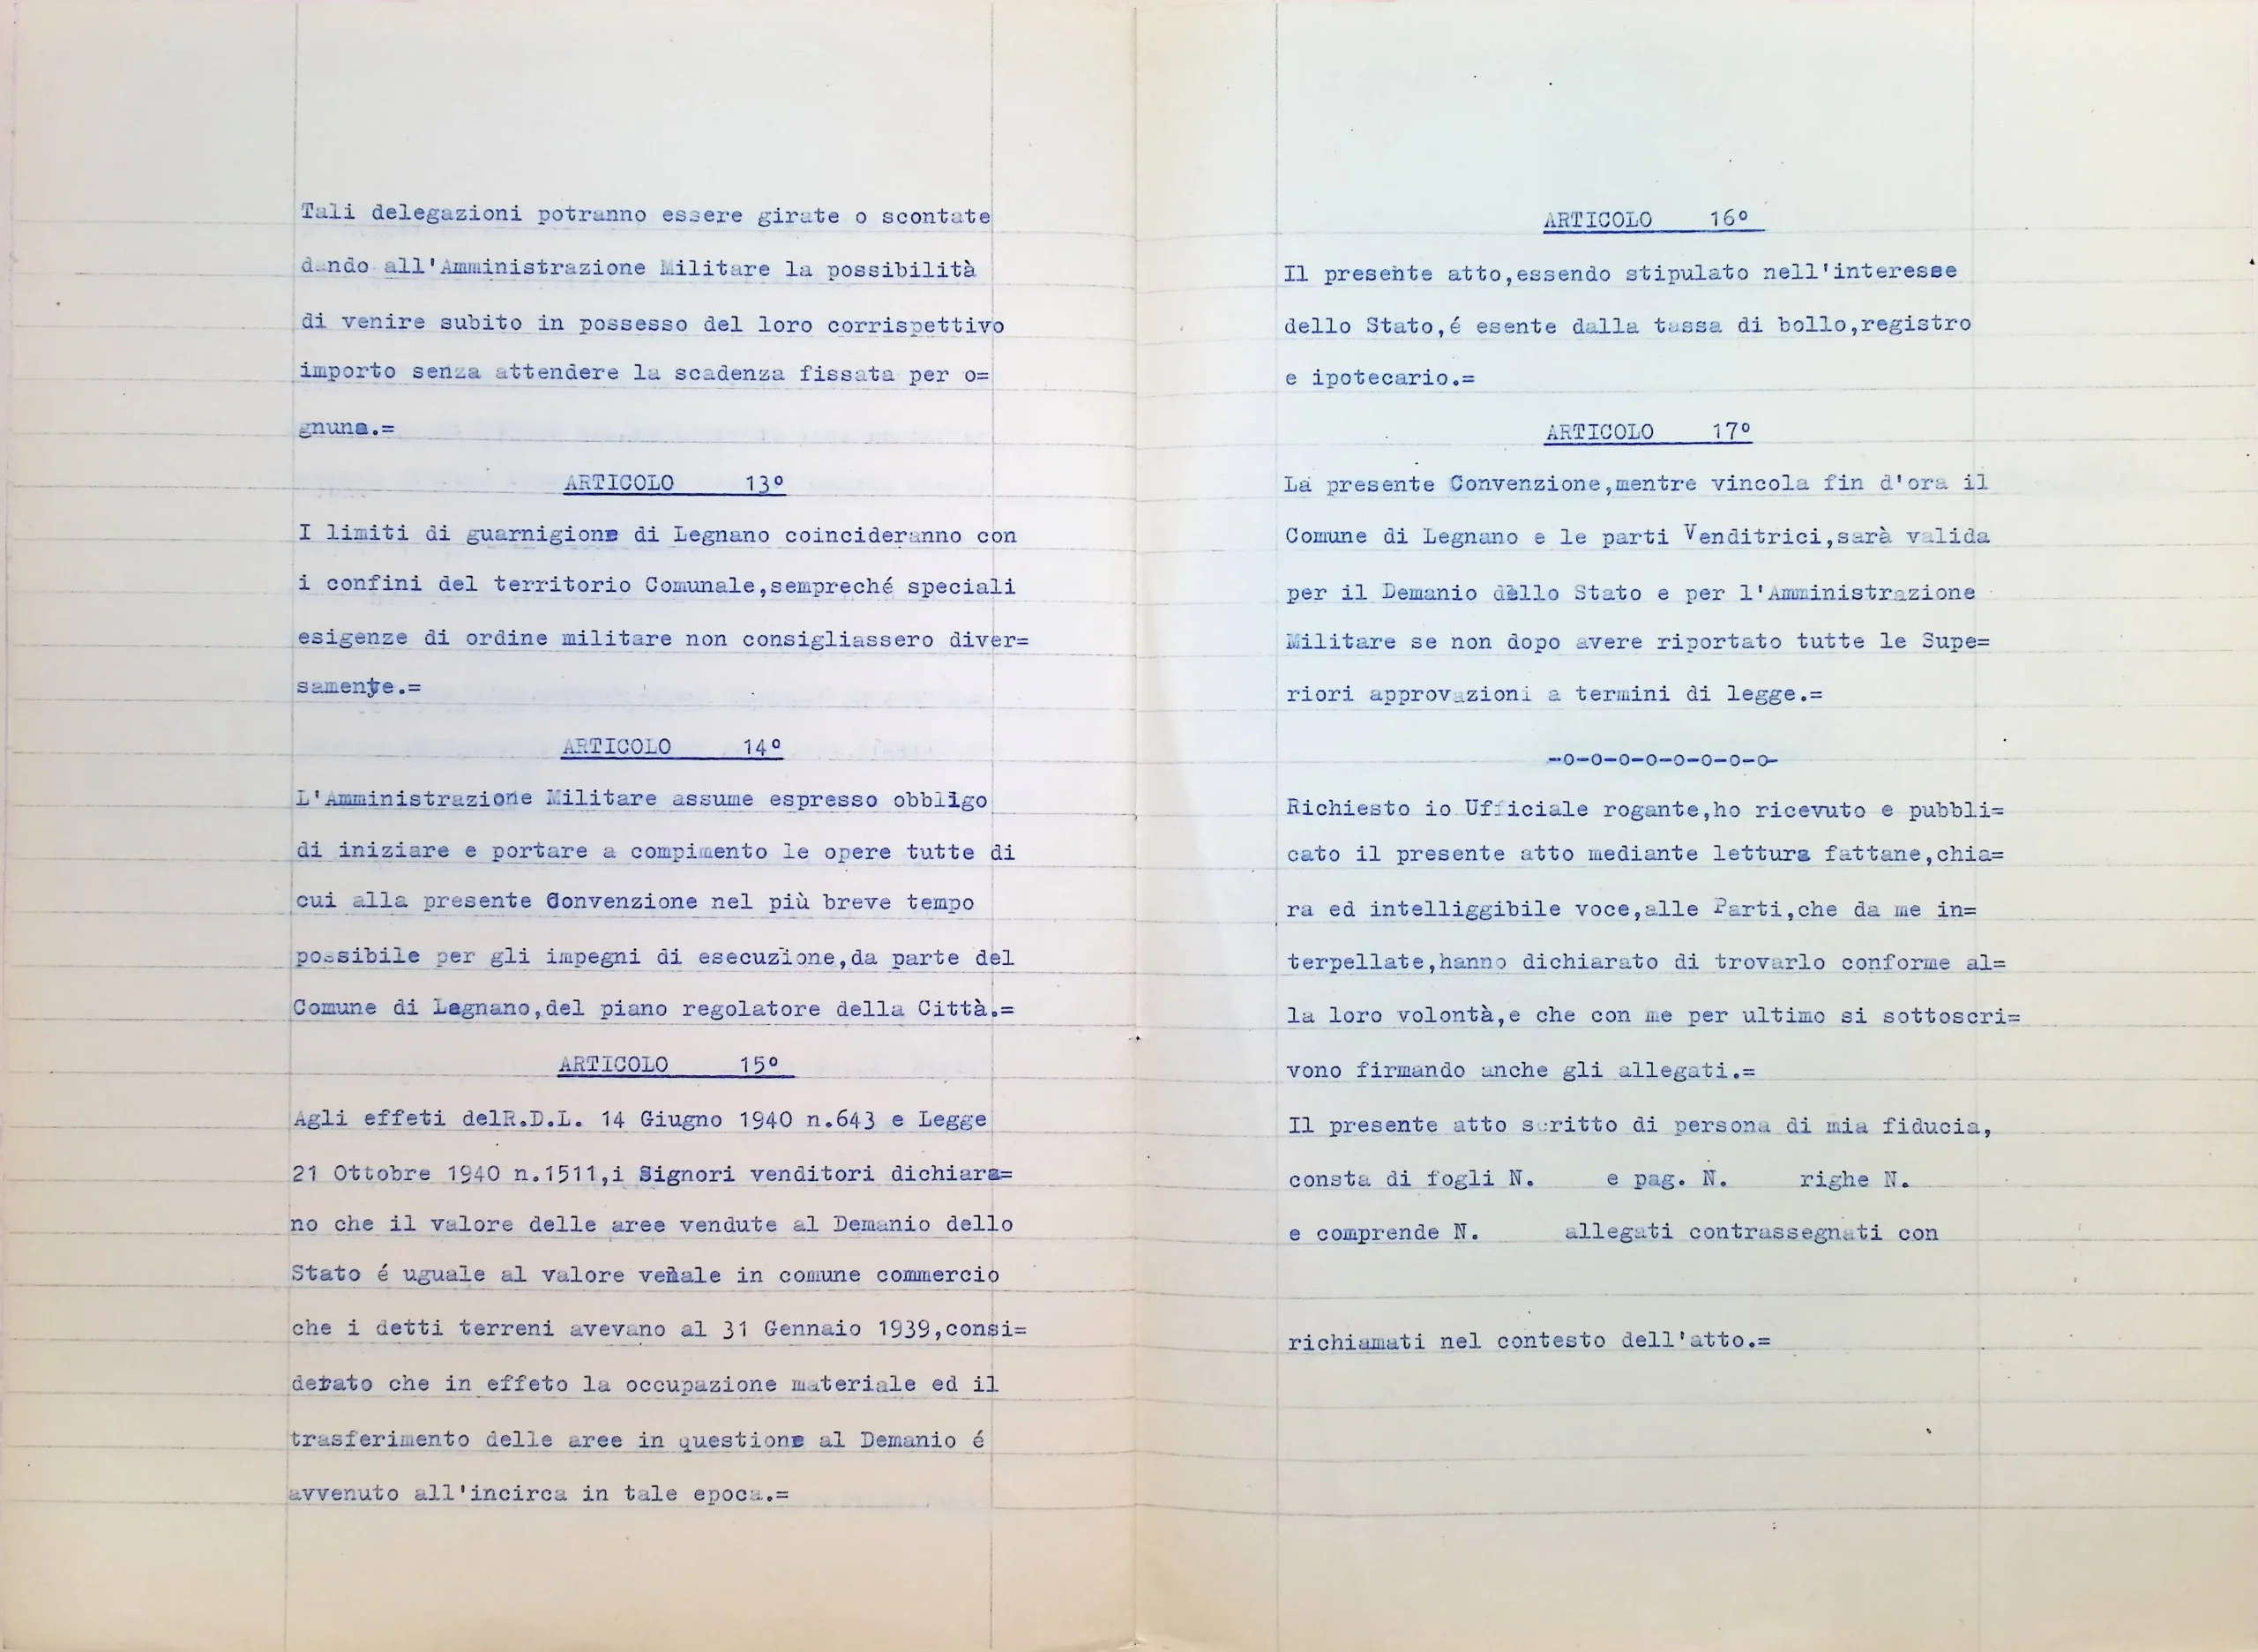 Tali delegazioni potranno essere girate o scontate
dando all'Amministrazione Militare la possibilità
di venire subito in possesso del loro corrispettivo
importo senza attendere la scadenza fissata per o=
gnuna.=
ARTICOLO 13º
I limiti di guarnigione di Legnano coincideranno con
i confini del territorio Comunale,sempreché speciali
esigenze di ordine militare non consigliassero diver=
samente.=
ARTICOLO 14º
L'Amministrazione Militare assume espresso obbligo
di iniziare e portare a compimento le opere tutte di
cui alla presente Convenzione nel più breve tempo
possibile per gli impegni di esecuzione,da parte del
Comune di Legnano,del piano regolatore della Città.=
ARTICOLO 15º
Agli effeti delR.D.L. 14 Giugno 1940 n.643 e Legge
21 Ottobre 1940 n.1511,i Signori venditori dichiara=
no che il valore delle aree vendute al Demanio dello
Stato é uguale al valore venale in comune commercio
che i detti terreni avevano al 31 Gennaio 1939,consi=
derato che in effeto la occupazione materiale ed il
trasferimento delle aree in questione al Demanio é
avvenuto all'incirca in tale epoca.=
ARTICOLO 16º
Il presente atto,essendo stipulato nell'interesse
dello Stato,é esente dalla tassa di bollo,registro
e ipotecario.=
ARTICOLO 17º
La presente Convenzione,mentre vincola fin d'ora il
Comune di Legnano e le parti Venditrici,sarà valida
per il Demanio dello Stato e per l'Amministrazione
Militare se non dopo avere riportato tutte le Supe=
riori approvazioni a termini di legge.=
-o-o-o-o-o-o-o-o-
Richiesto io Ufficiale rogante,ho ricevuto e pubbli=
cato il presente atto mediante lettura fattane,chia=
ra ed intelliggibile voce,alle Parti,che da me in=
terpellate,hanno dichiarato di trovarlo conforme al=
la loro volontà,e che con me per ultimo si sottoscri=
vono firmando anche gli allegati.=
Il presente atto scritto di persona di mia fiducia,
consta di fogli N. e pag. N. righe N.
e comprende N. allegati contrassegnati con
richiamati nel contesto dell'atto.=